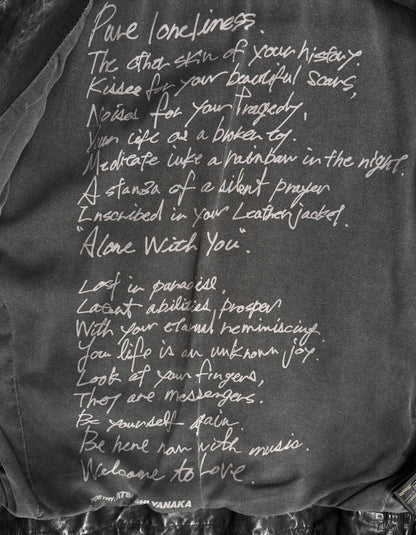 Pure loneliness.
The other skin of your history.
Kisses for your beautiful scars,
Noises for your tragedy,
Your life as a broken toy.
Meditate like a rainbow in the night.
A stanza of a silent prayer
Inscribed in your Leather jacket.
"Alone With You".
Lost in paradise,
Latent abilities prosper
With your eternal reminiscing.
Your life is an unknown joy.
Look at your fingers,
They are messengers.
Be yourself again.
Be here now with music.
Welcome to Love.
YANAKA